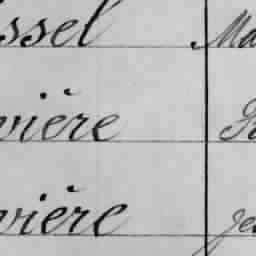 ssel Ma
vière
vière Je